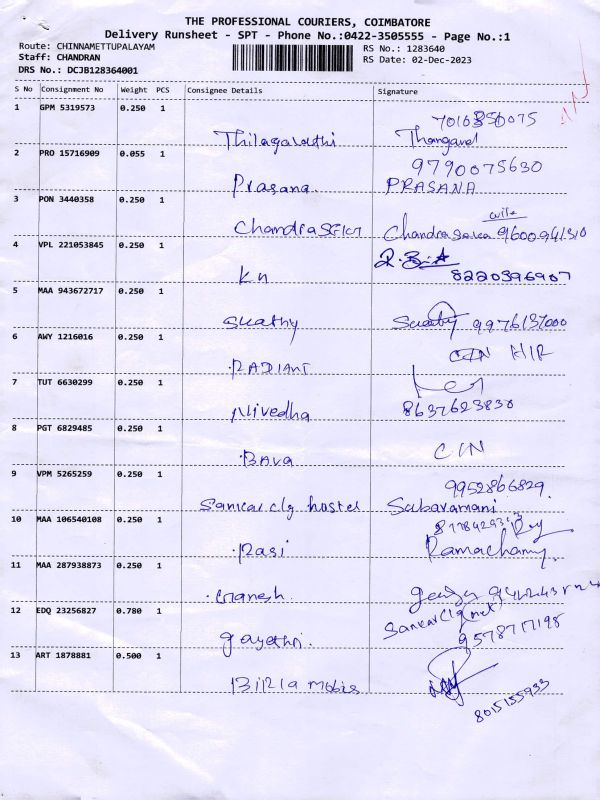 THE PROFESSIONAL COURIERS, COIMBATORE
Delivery Runsheet - SPT - Phone No.:0422-3505555 - Page No.:1
Route: CHINNAMETTUPALAYAM
RS No.: 1283640
Staff: CHANDRAN
RS Date: 02-Dec-2023
DRS No.: DCJB128364001
S No Consignment No Weight PCS Consignee Details Signature
1 GPM 5319573 0.250 1
Thilagavathi Thangavel
2 PRO 15716909 0.055 1 9790075630
Prasana. PRASANA
3 PON 3440358 0.250 1 wife
Chandrasekar Chandra Seka 9600941310
4 VPL 221053845 0.250 1
kn 8220396907
5 MAA 943672717 0.250 1
Swathy Swathy 9976137000
6 AWY 1216016 0.250 1 C/N H/R
RADIANT
7 TUT 6630299 0.250 1
Nivedha 8637623830
8 PGT 6829485 0.250 1 C/N
Bava
9 VPM 5265259 0.250 1 9952866829.
Sankar clg hostel Sabaramani
10 MAA 106540108 0.250 1
Rasi Ramachamy
11 MAA 287938873 0.250 1
Ganesh.
12 EDQ 23256827 0.780 1 Sankar clg
gayethri.
13 ART 1878881 0.500 1
Birla mobis 8015155933